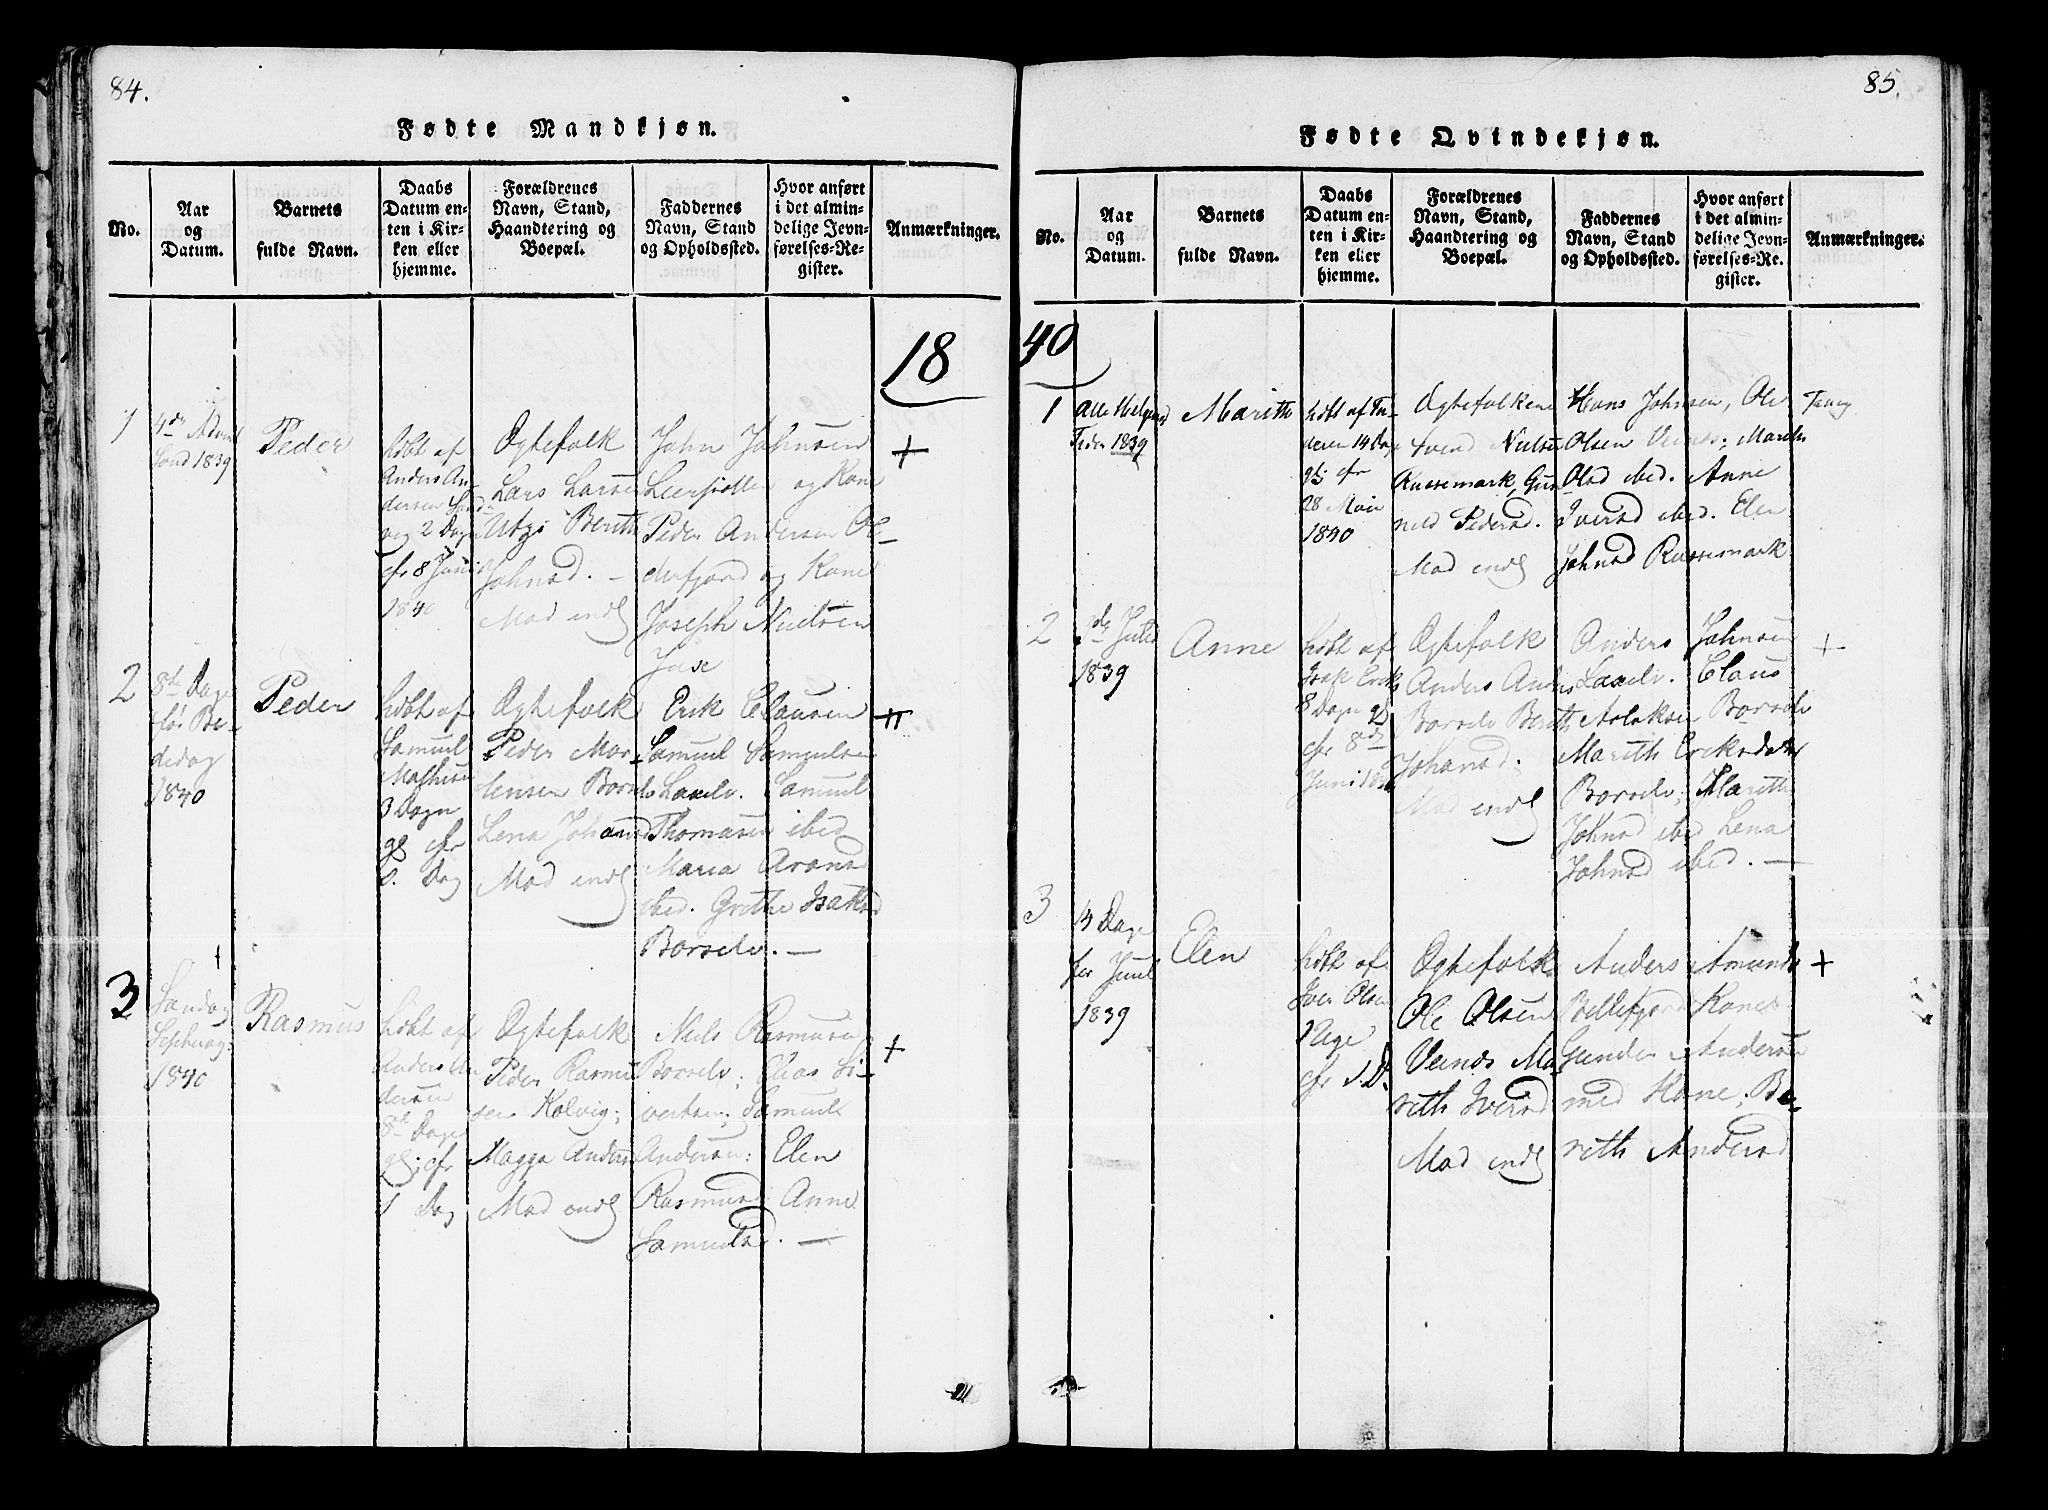 84.
Fødte Mandkjøn.
No.
Aar
og
Datum.
Barnets
fulde Navn.
Daabs
Datum en-
ten i Kir-
ken eller
hjemme.
Forældrenes
Navn, Stand,
Haandtering og
Boepæl.
Faddernes
Navn, Stand
og Opholdssted.
Hvor anført
i det almin-
delige Jevn-
førelses-Re-
gister.
Anmærkninger.
18
1
4de Advent
Sønd 1839
Peder
hdbt af
Anders An-
dersen
2 Dage
cfr 8 Juni
1840
Ogtefolk
Lars Larsen
Berith
Johnsd. -
Mod endl
John Johnsen
og Kone
Peder Andersen Ol-
derfjord og Kone
Joseph Nielsen
+
2
8te Dage
før Be-
dedag
1840
Peder
hdbt af
Samuel
Mathisen
3 Dage
gl cfr
s. Dag
Ogtefolk
Peder Mor-
tensen Borselv
Lena Johansd
Mod endl
Erik Clausen
Samuel Samuelsen
Laxelv. Samuel
Thomasen ibed
Maria Aronsd
ibed. Grethe Isaksd
Borselv. -
3
Søndag
Septuag:
1840
Rasmus
hdbt af
Anders An
dersen
8te Dage
gl; cfr
s Dag
Ogtefolk
Peder Rasmu
sen Kolvig;
Magga Anders
Mod endl
Niels Rasmusen
Borselv; Elias Si-
vertsen; Samuel
Andersen; Elen
Rasmusd Anne
Samuelsd. -
+
85.
Fødte Qvindekjøn.
No.
Aar
og
Datum.
Barnets
fulde Navn.
Daabs
Datum en-
ten i Kir-
ken eller
hjemme.
Forældrenes
Navn, Stand,
Haandtering og
Boepæl.
Faddernes
Navn, Stand
og Opholdssted.
Hvor anført
i det almin-
delige Jevn-
førelses-Re-
gister.
Anmærkninger.
40
1
Alle Helgens
Tider 1839
Marith
hdbt af Fa-
deren 14 Dage
gl; cfr
28 Mai
1840
Ogtefolkene
Nielsen
Russemark, Gun
nild Pedersd.
Mod endl
Hans Johnsen, Ole
Olsen Veines; Marith
Olsd ibed. Anne
Iversd ibed. Elen
Johnsd Russemark
2
Juli
1839
Anne
hdbt af
Isak Eriks
8 Dage gl
cfr 8de
Juni 1840
Ogtefolk
Anders Anders
Borselv Berith
Johansd.
Mod endl
Anders Johnsen
Laxelv. Claus
Aslaksen Borselv
Marith Eriksdatter
Borselv; Marith
Johnsd ibed Lena
Johnsd ibed. -
+
3
14 Dage
før Juul
1839
Elen
hdbt af
Iver Olsen
1 Uge
cfr s. D.
Ogtefolk
Ole Olsen
Veines Ma-
rith Iversd
Mod endl
Anders Amunds
Billefjord Kone
Gunder Andersen
med Kone; Be-
rith Andersd
+